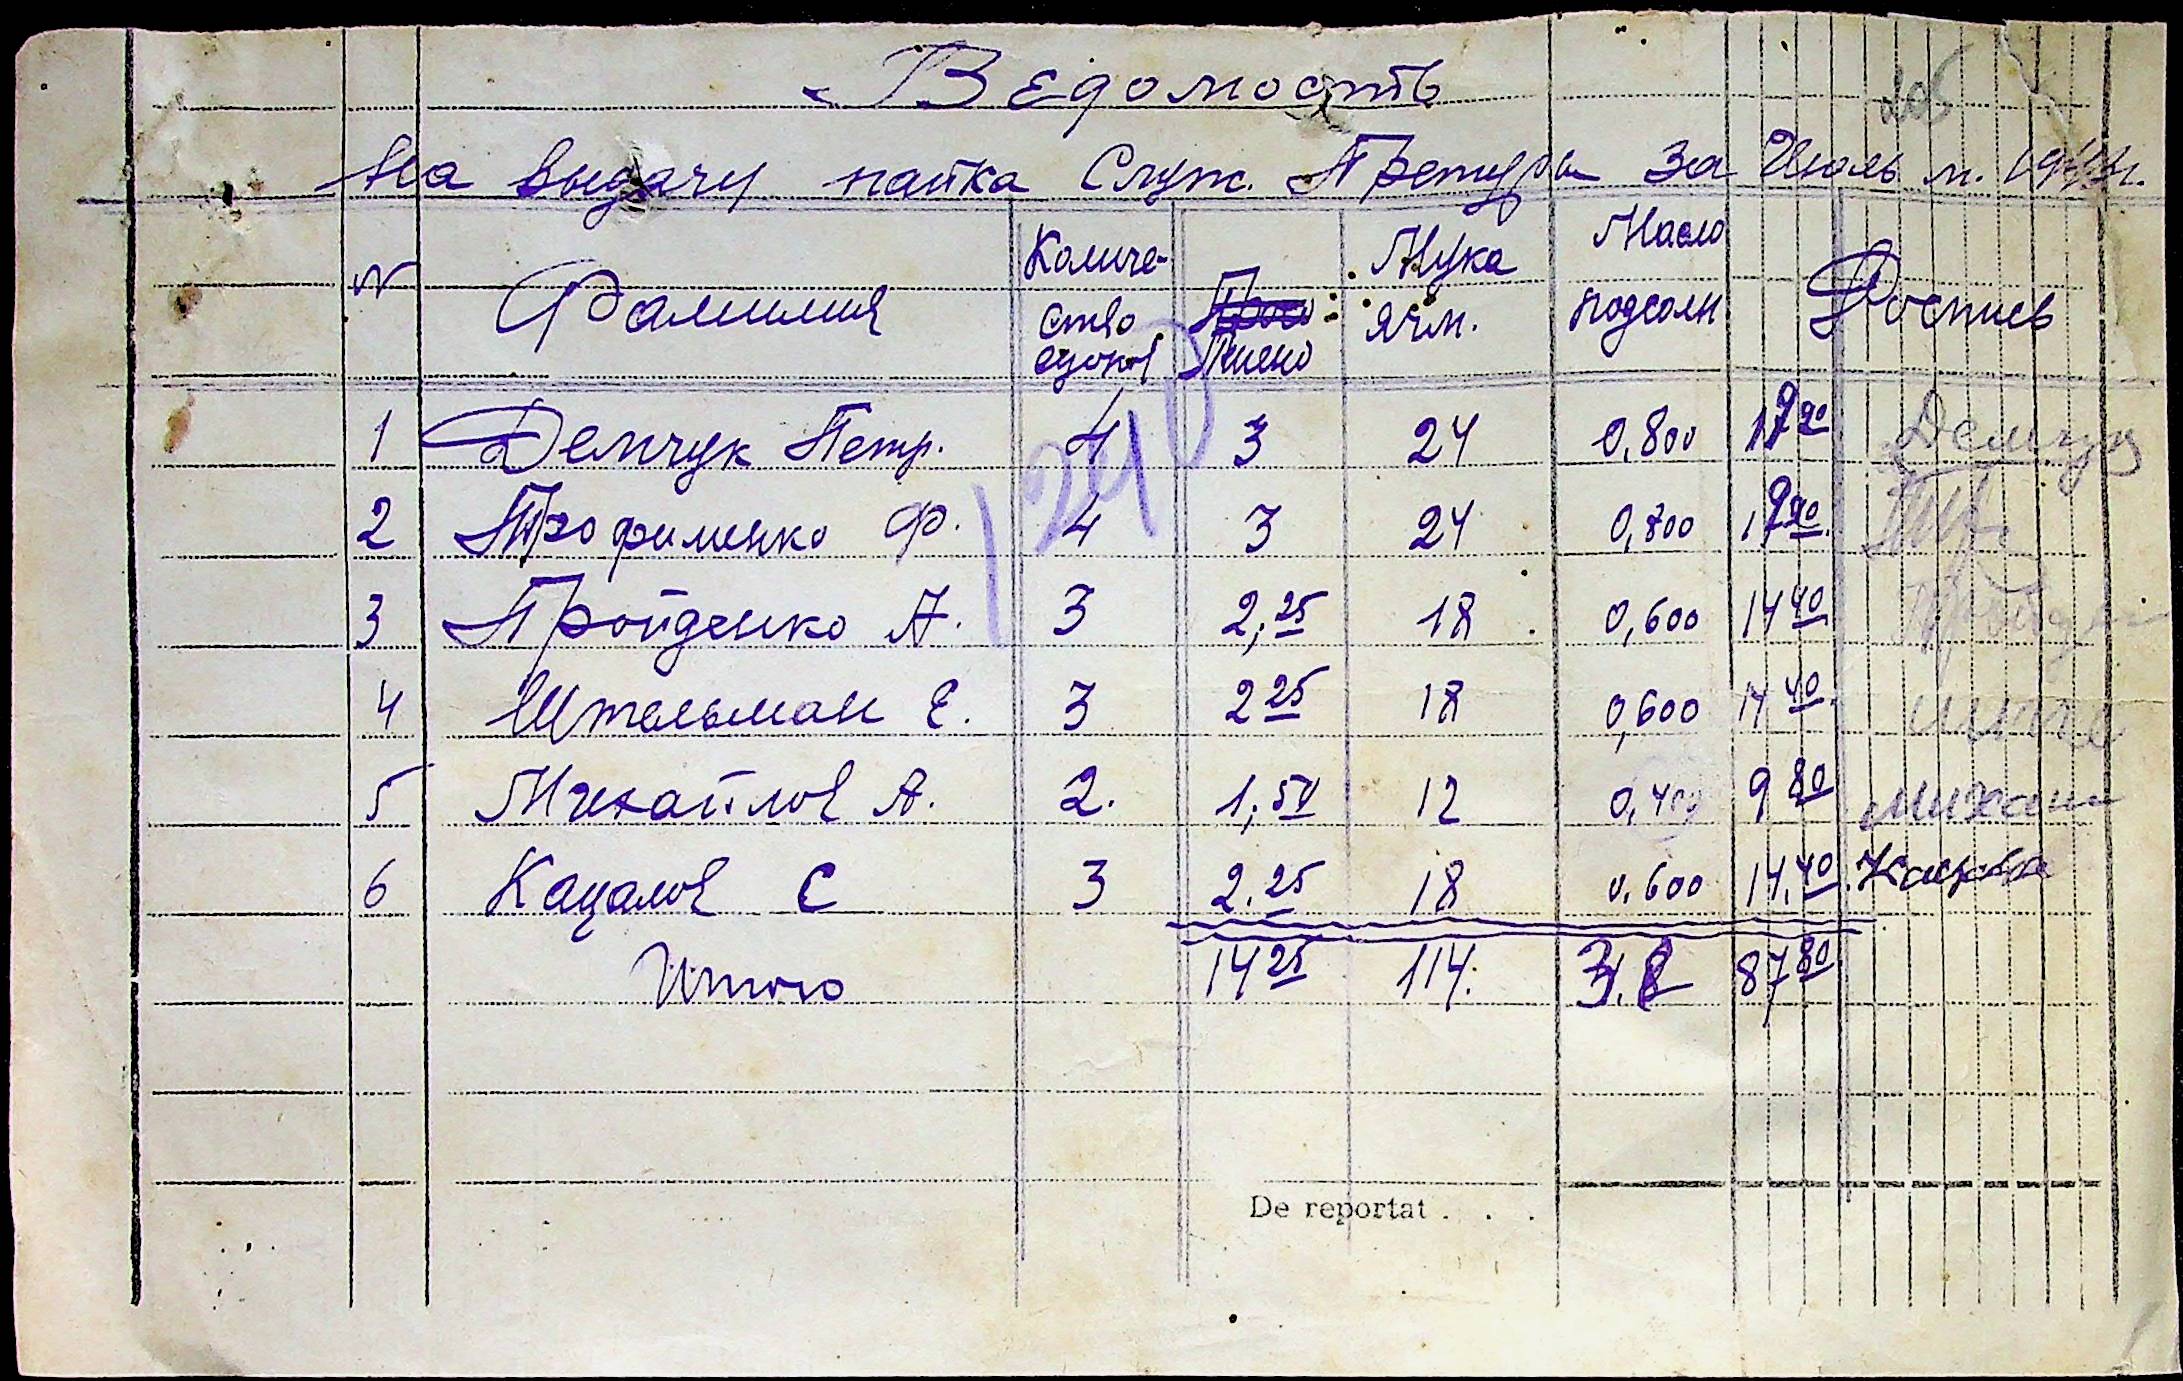 Ведомость
На выдачу пайка Служ. Претуры за Июль м. 194 г.
N Фамилия Количество едоков Пшено Мука ячм. Масло подсолн Роспись
1 Демчук Петр. 4 3 24 0,800 Демчук
2 Трофименко Ф. 4 3 24 0,800
3 Пройденко А. 3 2,25 18 0,600 14 40
4 Штельман Е. 3 2 25 18 0,600 14 40
5 Михайлов А. 2. 1,50 12 0,400 9 80 Михаи
6 Кацалов С 3 2.25 18 0.600 14.40
Итого 14 25 114. 3.8 87 80
1240
De reportat . . .